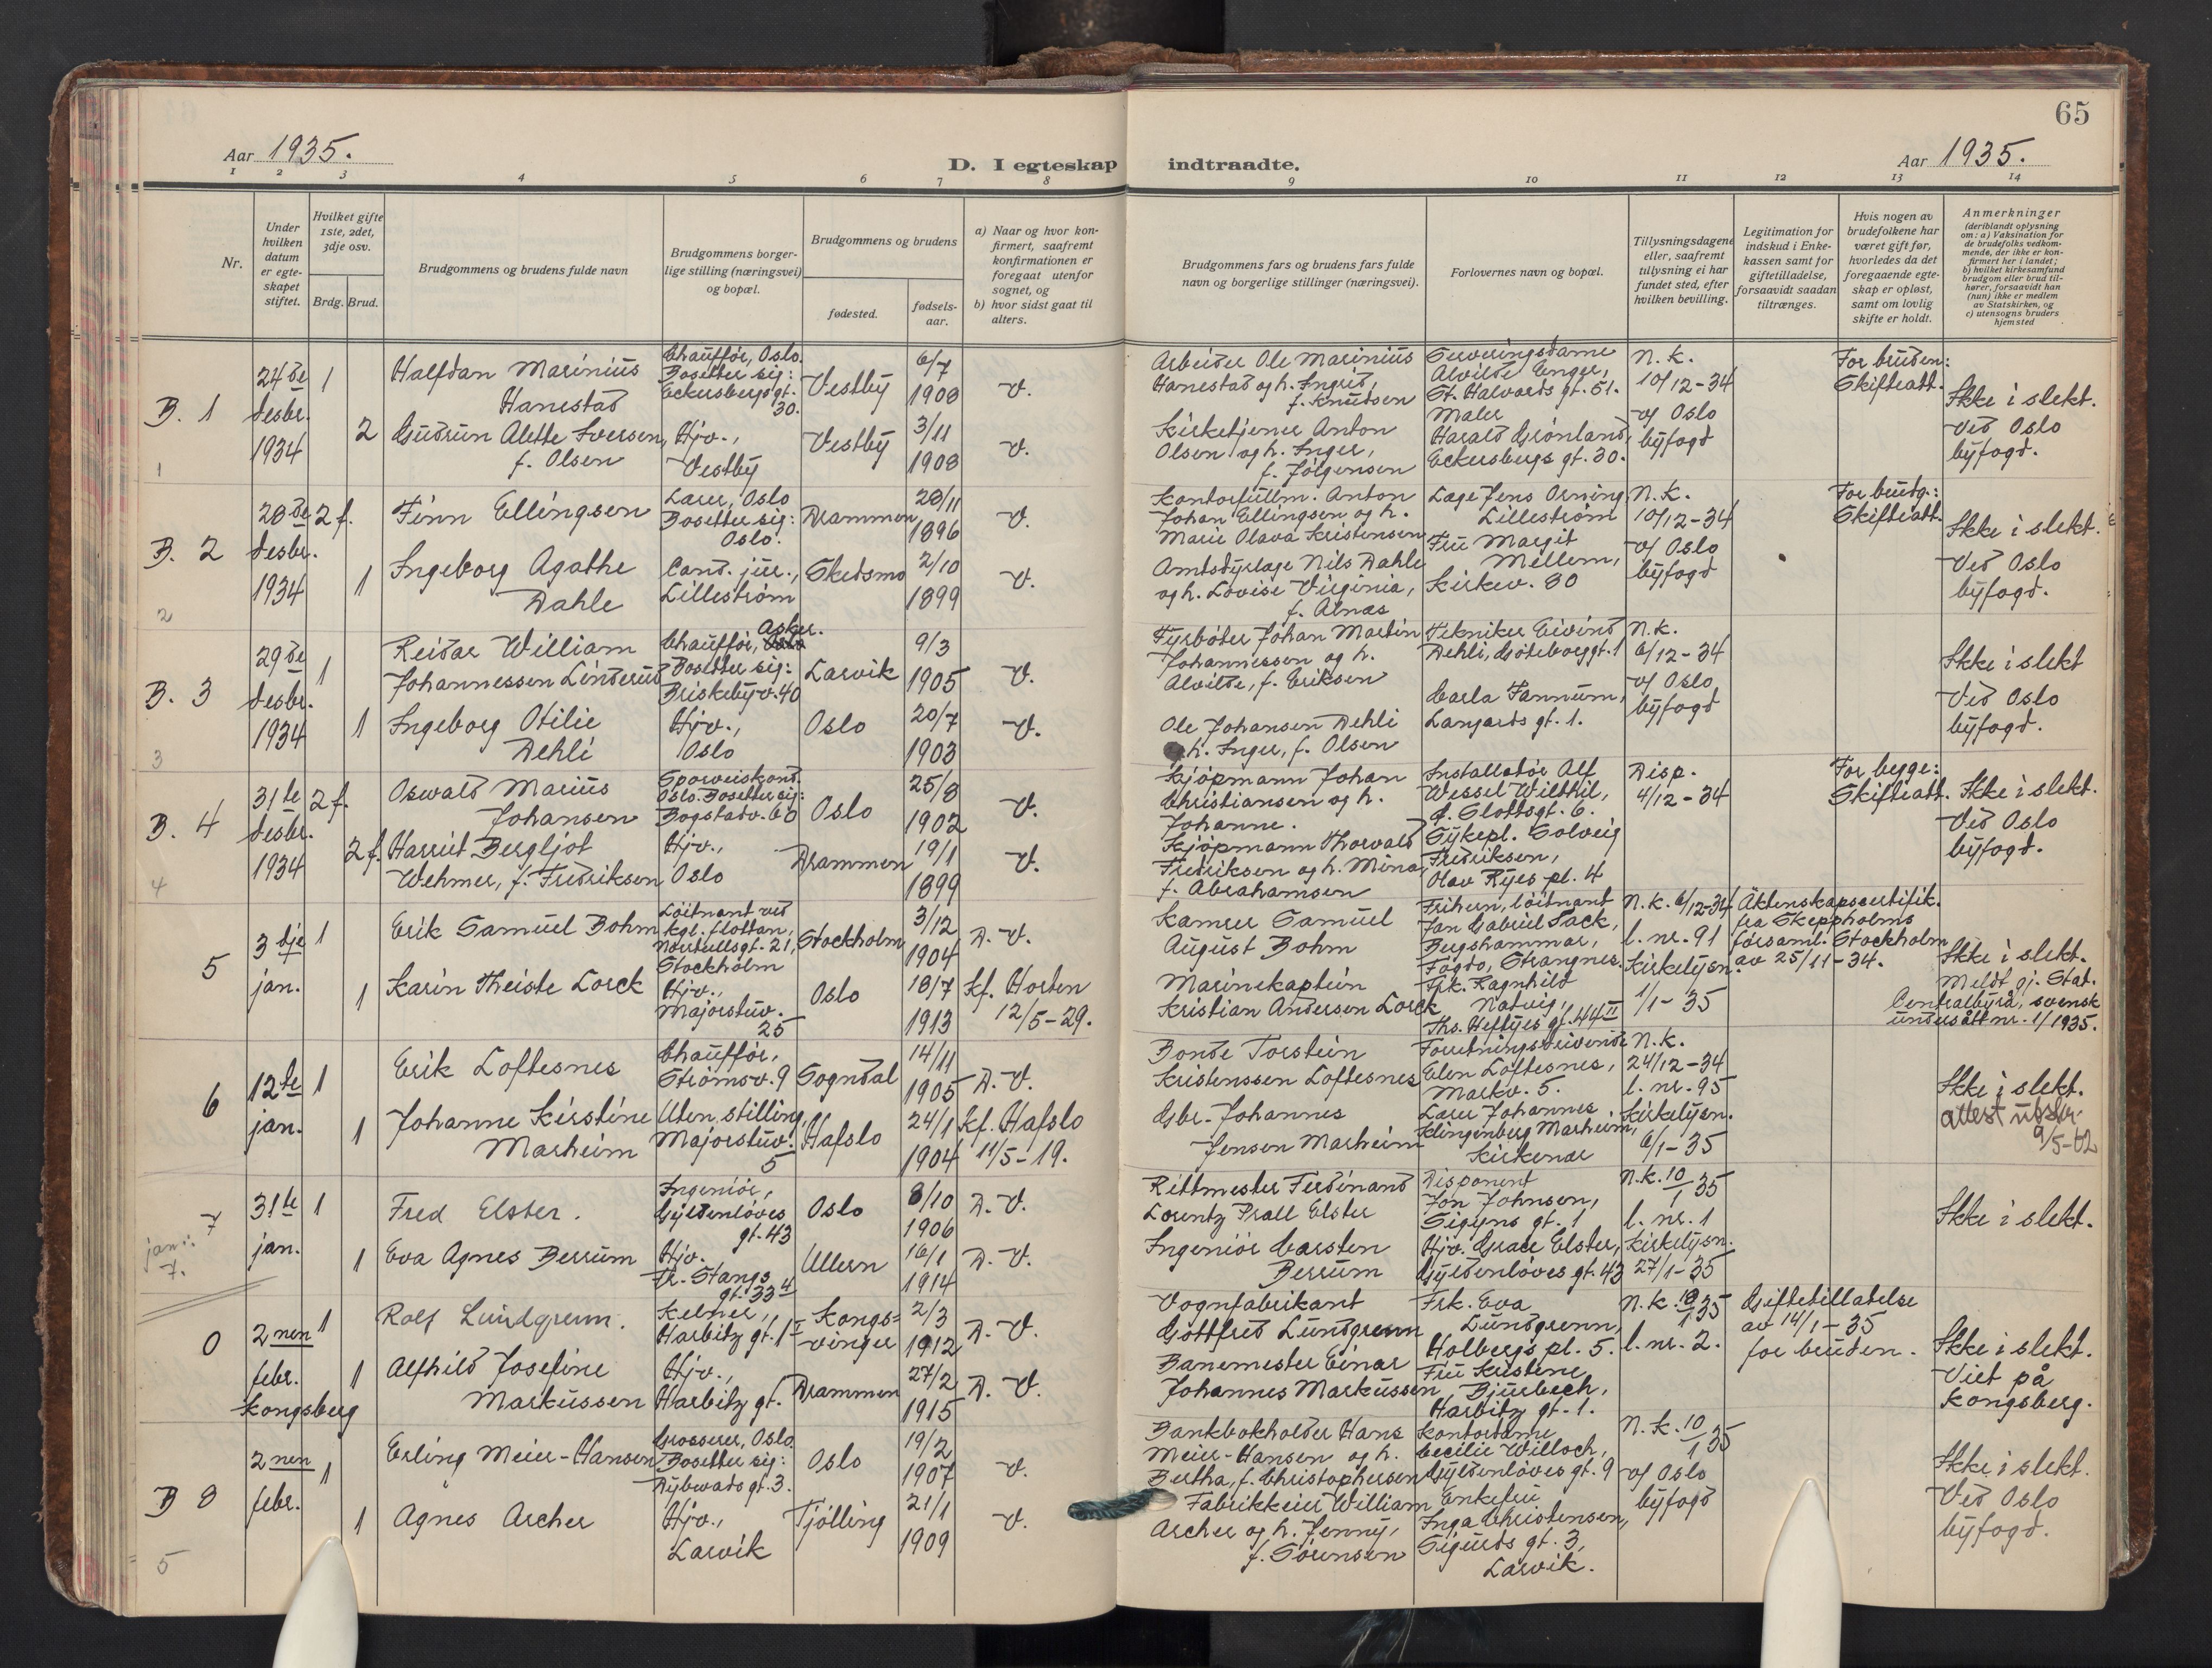 65
Aar 1935.
D. I egteskap indtraadte.
Aar 1935.
1 2 3 4 5 6 7 8 9 10 11 12 13 14
Nr.
Under hvilken datum er egteskapet stiftet.
Hvilket gifte 1ste, 2det, 3dje osv.
Brdg. Brud.
Brudgommens og brudens fulde navn
Brudgommens borgerlige stilling (næringsvei) og bopæl.
Brudgommens og brudens
fødested.
fødselsaar.
a) Naar og hvor konfirmert, saafremt konfirmationen er foregaat utenfor sognet, og
b) hvor sidst gaat til alters.
Brudgommens fars og brudens fars fulde navn og borgerlige stillinger (næringsvei).
Forlovernes navn og bopæl.
Tillysningsdagene eller, saafremt tillysning ei har fundet sted, efter hvilken bevilling.
Legitimation for indskud i Enkekassen samt for giftetilladelse, forsaavidt saadan tiltrænges.
Hvis nogen av brudefolkene har været gift før, hvorledes da det foregaaende egteskap er opløst, samt om lovlig skifte er holdt.
Anmerkninger
(deriblandt oplysning om: a) Vaksination for de brudefolks vedkommende, der ikke er konfirmert her i landet;
b) hvilket kirkesamfund brudgom eller brud tilhører, forsaavidt han (hun) ikke er medlem av Statskirken, og
c) utensogns bruders hjemsted
B. 1
1
24de desbr. 1934
1
Halfdan Marinius Hanestad
Chauffør, Oslo. Bosetter sig: Eckersbergsgt. 30.
Vestby
6/7 1908
V.
Arbeider Ole Marinius Hanestad og h. Ingrid, f. Knudsen
Serveringsdame Alvilde Enger, St. Halvards gt. 51.
N.K. 10/12-34 v/ Oslo byfogd
For bruden: Skifteatt.
Ikke i slekt. Ved Oslo byfogd.
2
Gudrun Alette Iversen, f. Olsen
Hjv., Vestby
Vestby
3/11 1908
V.
Kirketjener Anton Olsen og h. Inger, f. Jølgensen
Maler Harald Grønland, Eckersbergs gt. 30.
B. 2
2
28de desbr. 1934
2 f.
Finn Ellingsen
Lærer, Oslo Bosetter sig: Oslo.
Drammen
28/11 1896
V.
Kontorfullm. Anton Johan Ellingsen og h. Marie Olava Kristensen
Læge Jens Orning Lillestrøm
N.K. 10/12-34 v/ Oslo byfogd
For brudg.: Skifteatt.
Ikke i slekt. Ved Oslo byfogd.
1
Ingeborg Agathe Dahle
Cand. jur., Lillestrøm
Skedsmo
2/10 1899
V.
Amtsdyrlæge Nils Dahle og h. Lovise Virginia, f. Alnæs
Fru Margit Mellem, Kirkev. 80
B. 3
3
29de desbr. 1934
1
Reidar William Johannessen Linderud
Chauffør, Asker. Bosetter sig: Briskebyv. 40
Larvik
9/3 1905
V.
Fyrbøter Johan Martin Johannessen og h. Alvilde, f. Eriksen
Tekniker Eivind Dehli, Gøteborggt. 1
N.K. 6/12-34 v/ Oslo byfogd
Ikke i slekt Ved Oslo byfogd.
1
Ingeborg Otilie Dehli
Hjv., Oslo
Oslo
20/7 1903
V.
Ole Johansen Dehli og h. Inger, f. Olsen
Carla Fannum, Langards gt. 1.
B. 4
4
31te desbr. 1934
2 f.
Oswald Marius Johansen
Sporveiskond. Oslo. Bosetter sig: Bogstadv. 60
Oslo
25/8 1902
V.
Kjøpmann Johan Christiansen og h. Johanne.
Installatør Alf Wessel Wildhil, d. Slottsgt. 6.
Disp. 4/12-34
For begge: Skifteatt.
Ikke i slekt. Ved Oslo byfogd.
2 f.
Harriet Bergljot Wehmer, f. Fredriksen
Hjv., Oslo
Drammen
19/1 1899
V.
Kjøpmann Thorvald Fredriksen og h. Mina, f. Abrahamsen
Sykepl. Solveig Fredriksen, Olav Ryes pl. 4
5
3dje jan.
1
Erik Samuel Bohm
Löitnant ved kgl. flottan, Norrtullsgt. 21, Stockholm
Stockholm
3/12 1904
D.V.
Kamrer Samuel August Bohm
Friherr, löitnant Jan Gabriel Sack, Bergshammar, Fogdo, Strangnes.
N.K. 6/12-34 l. nr. 91 Kirkelysn. 1/1-35
Äktenskapscertifik. fra Skeppholms församl. Stockholm av 25/11-34.
Ikke i slekt. Meldt gj. Stat. Centralbyrå, svensk undersått nr. 1/1935.
1
Karin Theiste Lorck
Hjv., Majorstuv. 25
Oslo
18/7 1913
Kf. Horten 12/5-29.
Marinekaptein Kristian Andersen Lorck
Frk. Ragnhild Natvig, Ths. Heftyes gt. 44 II
6
12te jan.
1
Erik Loftesnes
Chauffør, Strømsv. 9
Sogndal
14/11 1905
D.V.
Bonde Torstein Kristenssen Loftesnes
Forretningsdrivende Elen Loftesnes, Markv. 5.
N.K. 24/12-34 l. nr. 95 Kirkelysn. 6/1-35
Ikke i slekt. attest utskr. 9/5-42
1
Johanne Kirstine Marheim
Uten stilling, Majorstuv. 5
Hafslo
24/1 1904
Kf. Hafslo 11/5-19.
Gbr. Johannes Jensen Marheim
Lærer Johannes Klingenberg Marheim, Kirkenær
7
jan.: 7.
31te jan.
1
Fred Elster.
Ingeniør, Gyldenløves gt. 43
Oslo
8/10 1906
D.V.
Rittmester Ferdinand Lorentz Prall Elster
Disponent Jon Johnsen, Sigyns gt. 1
N.K. 10/1 35 l. nr. 1 Kirkelysn. 27/1-35
Ikke i slekt.
1
Eva Agnes Berrum
Hjv. Fr. Stangs gt. 33 4
Ullern
16/1 1914
D.V.
Ingeniør Carsten Berrum
Hjv. Grace Elster, Gyldenløves gt. 43
0
2nen febr. Kongsberg
1
Rolf Lundgrenn.
Kelner, Harbitz gt. 1 I
Kongsvinger
2/3 1912
D.V.
Vognfabrikant Gottfred Lundgrenn
Frk. Eva Lundgrenn, Holbergs pl. 5.
N.K. 18/1 35 l. nr. 2.
Giftetillatelse av 14/1-35 for bruden.
Ikke i slekt. Viet på Kongsberg.
1
Alfhild Josefine Markussen
Hjv., Harbitz gt.
Drammen
27/2 1915
D.V.
Banemester Einar Johannes Markussen
Fru Kristine Bjurbech, Harbitz gt. 1.
B 8
5
2nen febr.
1
Erling Meier-Hansen
Grosserer, Oslo. Bosetter sig: Dybwads gt. 3.
Oslo
19/2 1907
V.
Bankbokholder Hans Meier-Hansen og h. Bertha, f. Christophersen
Kontordame Cecilie Willoch, Gyldenløves gt. 9
N.K. 10/1 35 v/ Oslo byfogd
Ikke i slekt. Ved Oslo byfogd.
1
Agnes Archer
Hjv., Larvik
Tjølling
21/1 1909
V.
Fabrikkeier William Archer og h. Jenny, f. Sørensen
Enkefru Inga Christensen, Sigurds gt. 3, Larvik.